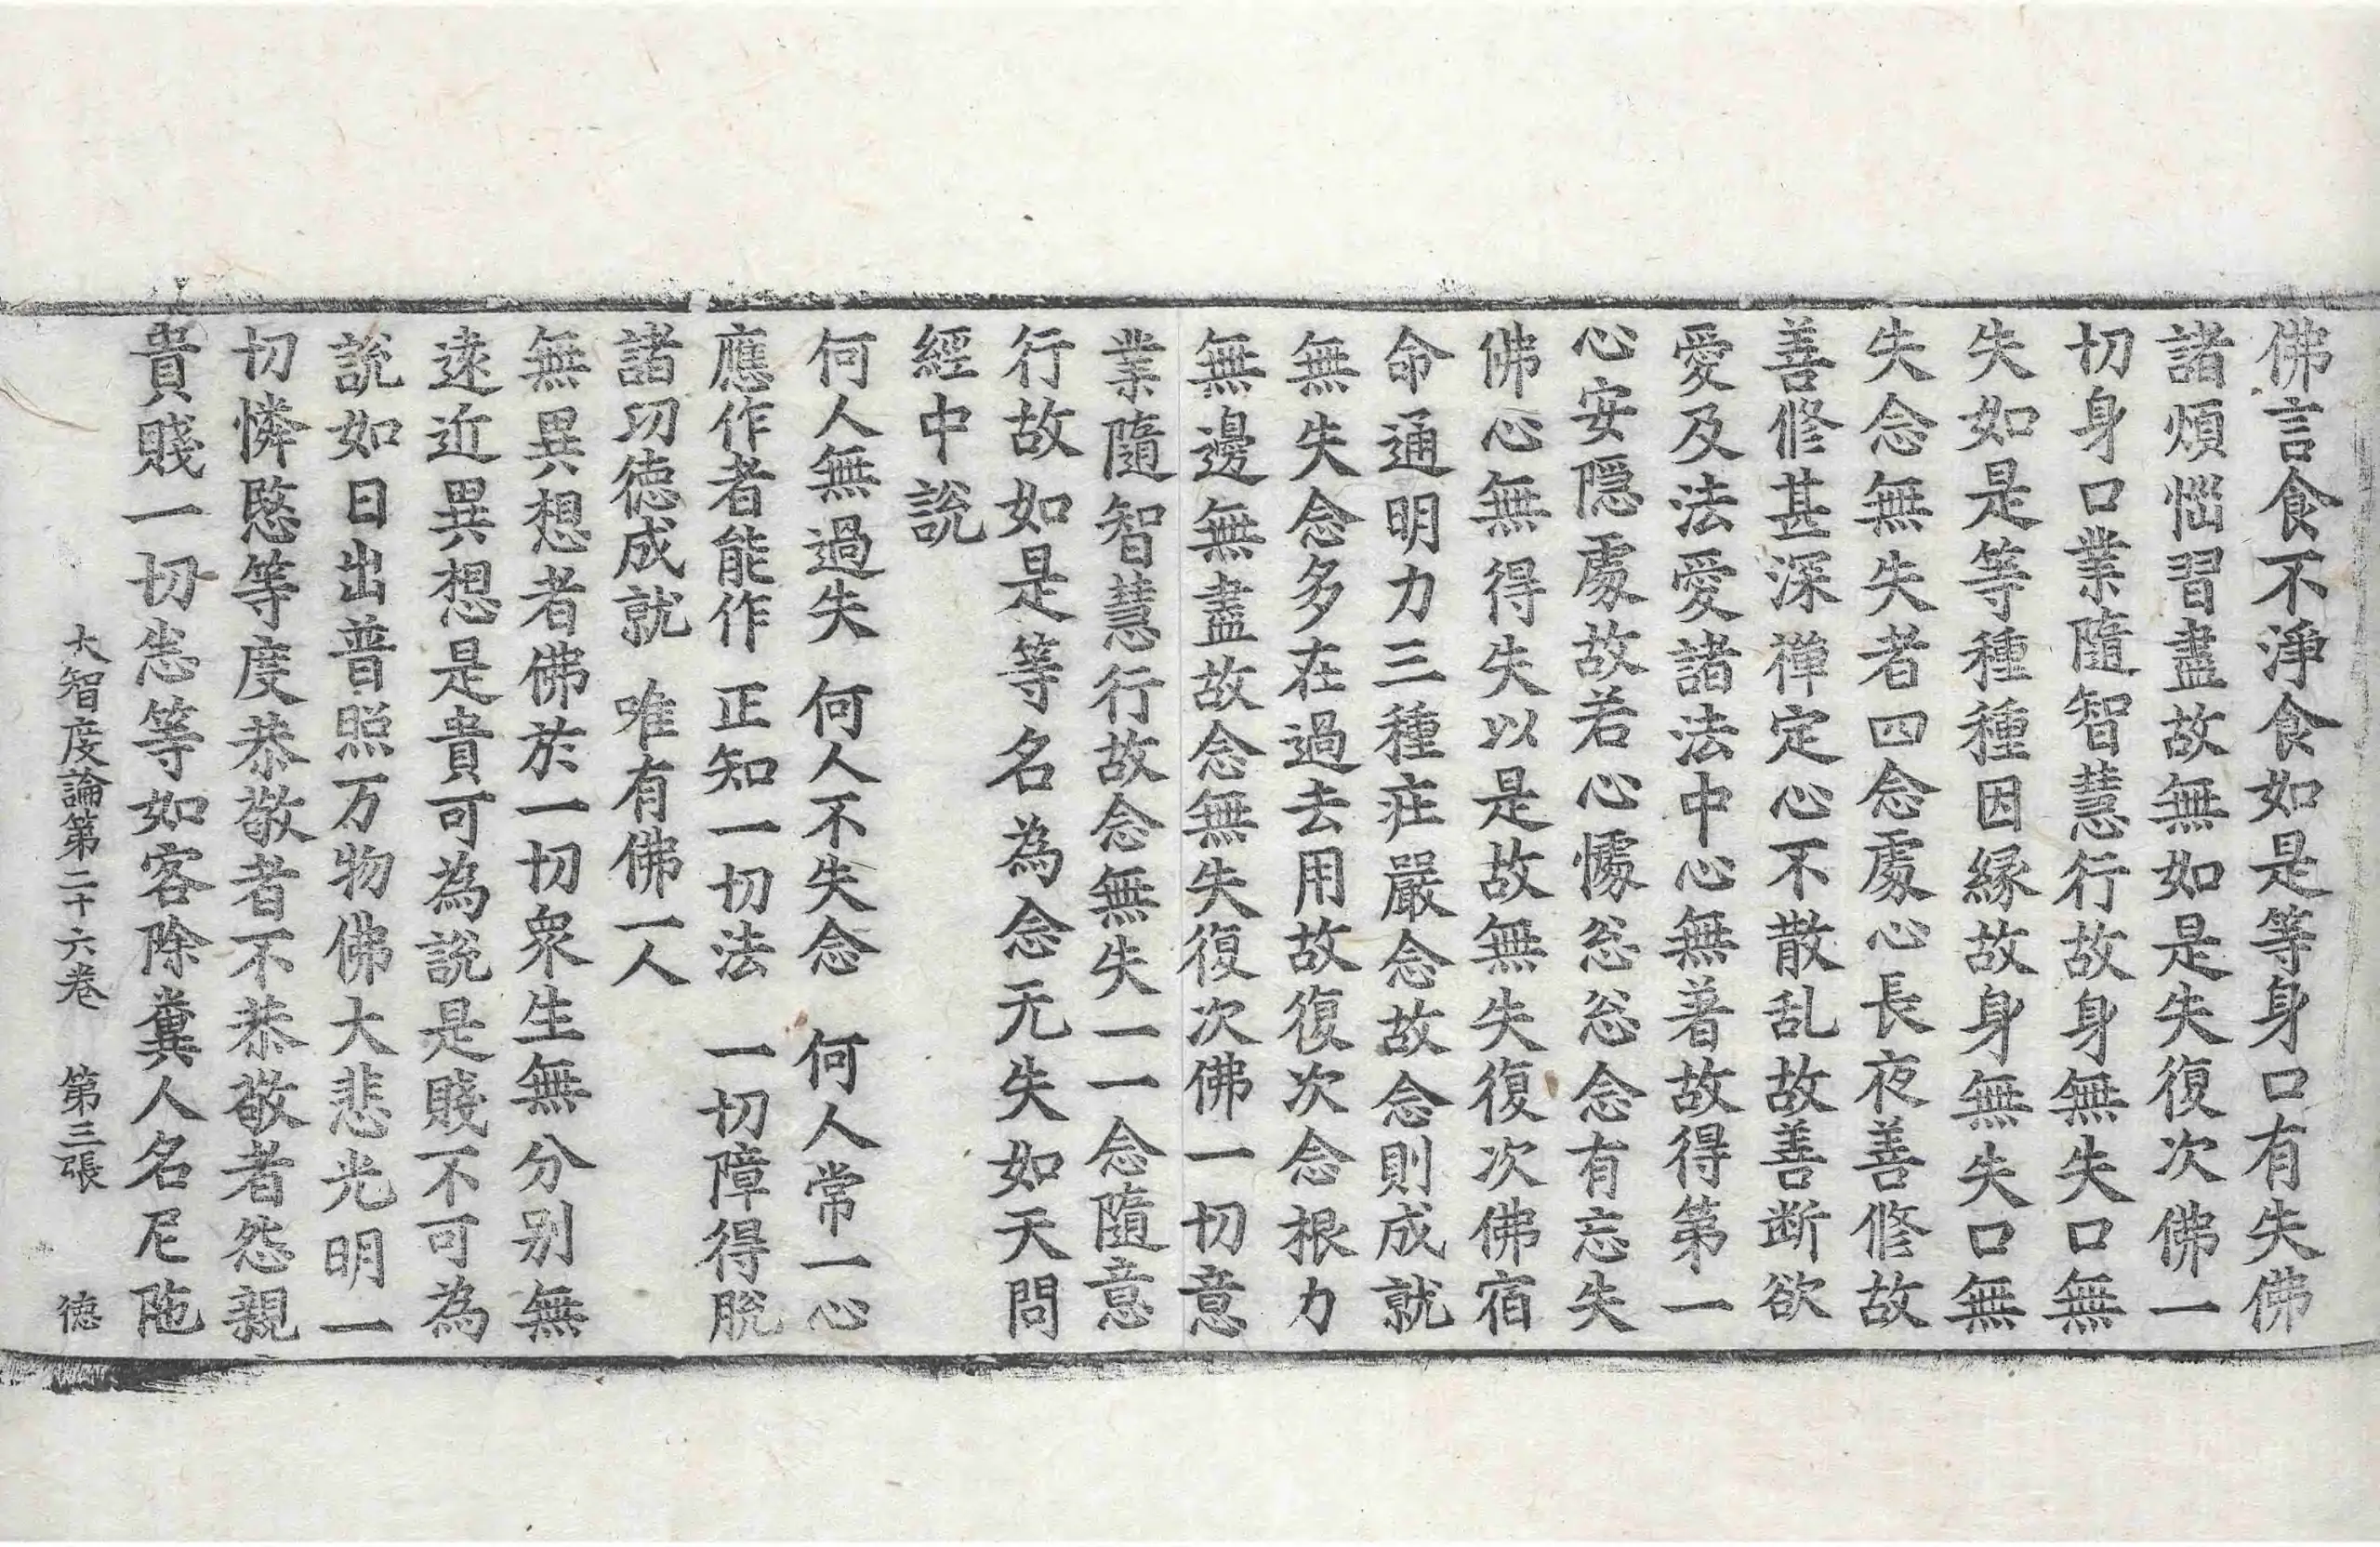 佛言食不淨食如是等身口有失佛
諸煩惱習盡故無如是失復次佛一
切身口業隨智慧行故身無失口無
失如是等種種因緣故身無失口無
失念無失者四念處心長夜善修故
善修甚深禪定心不散乱故善断欲
愛及法愛諸法中心無著故得第一
心安隱處故若心懅忩忩念有忘失
佛心無得失以是故無失復次佛宿
命通明力三種疘嚴念故念則成就
無失念多在過去用故復次念根力
無邊無盡故念無失復次佛一切意
業隨智慧行故念無失一一念隨意
行故如是等名為念无失如天問
經中說
何人無過失　何人不失念　何人常一心
應作者能作　正知一切法　一切障得脫
諸功德成就　唯有佛一人
無異想者佛於一切衆生無分别無
遠近異想是貴可為說是賤不可為
說如日出普照万物佛大悲光明一
切憐愍等度恭敬者不恭敬者怨親
貴賤一切悉等如客除糞人名尼陁
大智度論第二十六卷　第三張　德